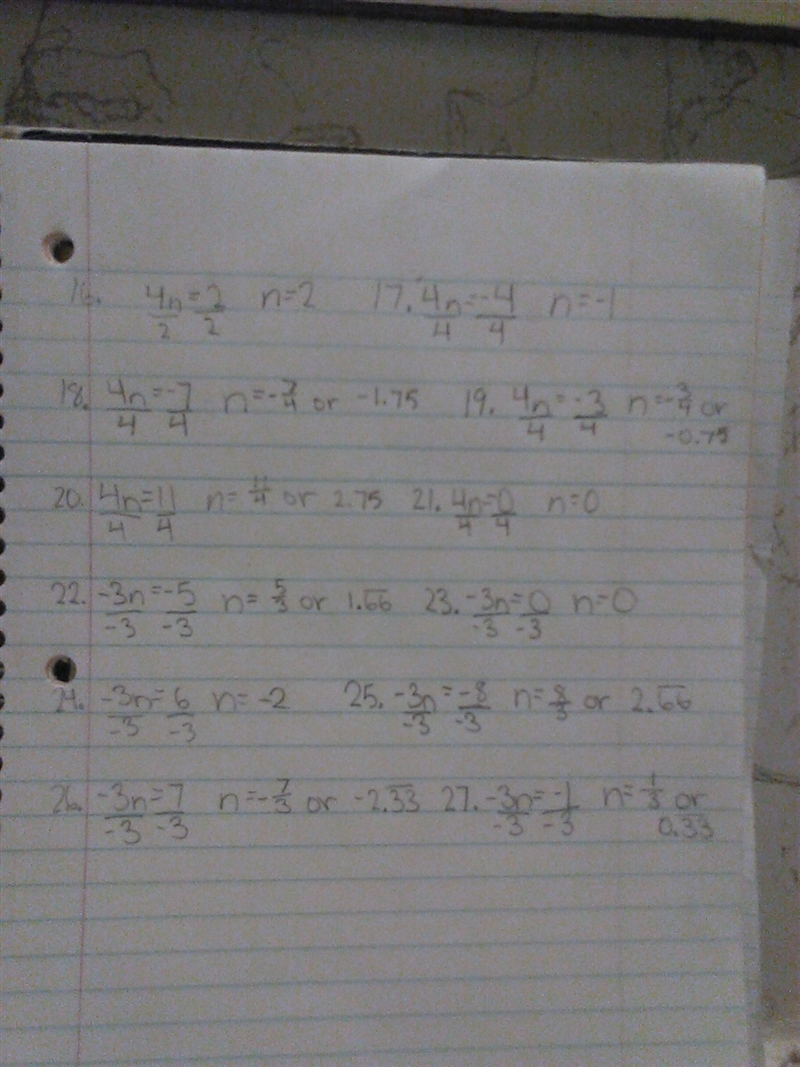 16. 4n/2 = 2/2 n=2 17. 4n/4 = -4/4 n=-1
18. 4n/4 = -7/4 n=-7/4 or -1.75 19. 4n/4 = -3/4 n=-3/4 or
-0.75
20. 4n/4 = 11/4 n=11/4 or 2.75 21. 4n/4 = 0/4 n=0
22. -3n/-3 = -5/-3 n=5/3 or 1.6̅6̅ 23. -3n/-3 = 0/-3 n=0
24. -3n/-3 = 6/-3 n=-2 25. -3n/-3 = -8/-3 n=8/3 or 2.6̅6̅
26. -3n/-3 = 7/-3 n=-7/3 or -2.3̅3̅ 27. -3n/-3 = -1/-3 n=1/3 or
0.3̅3̅